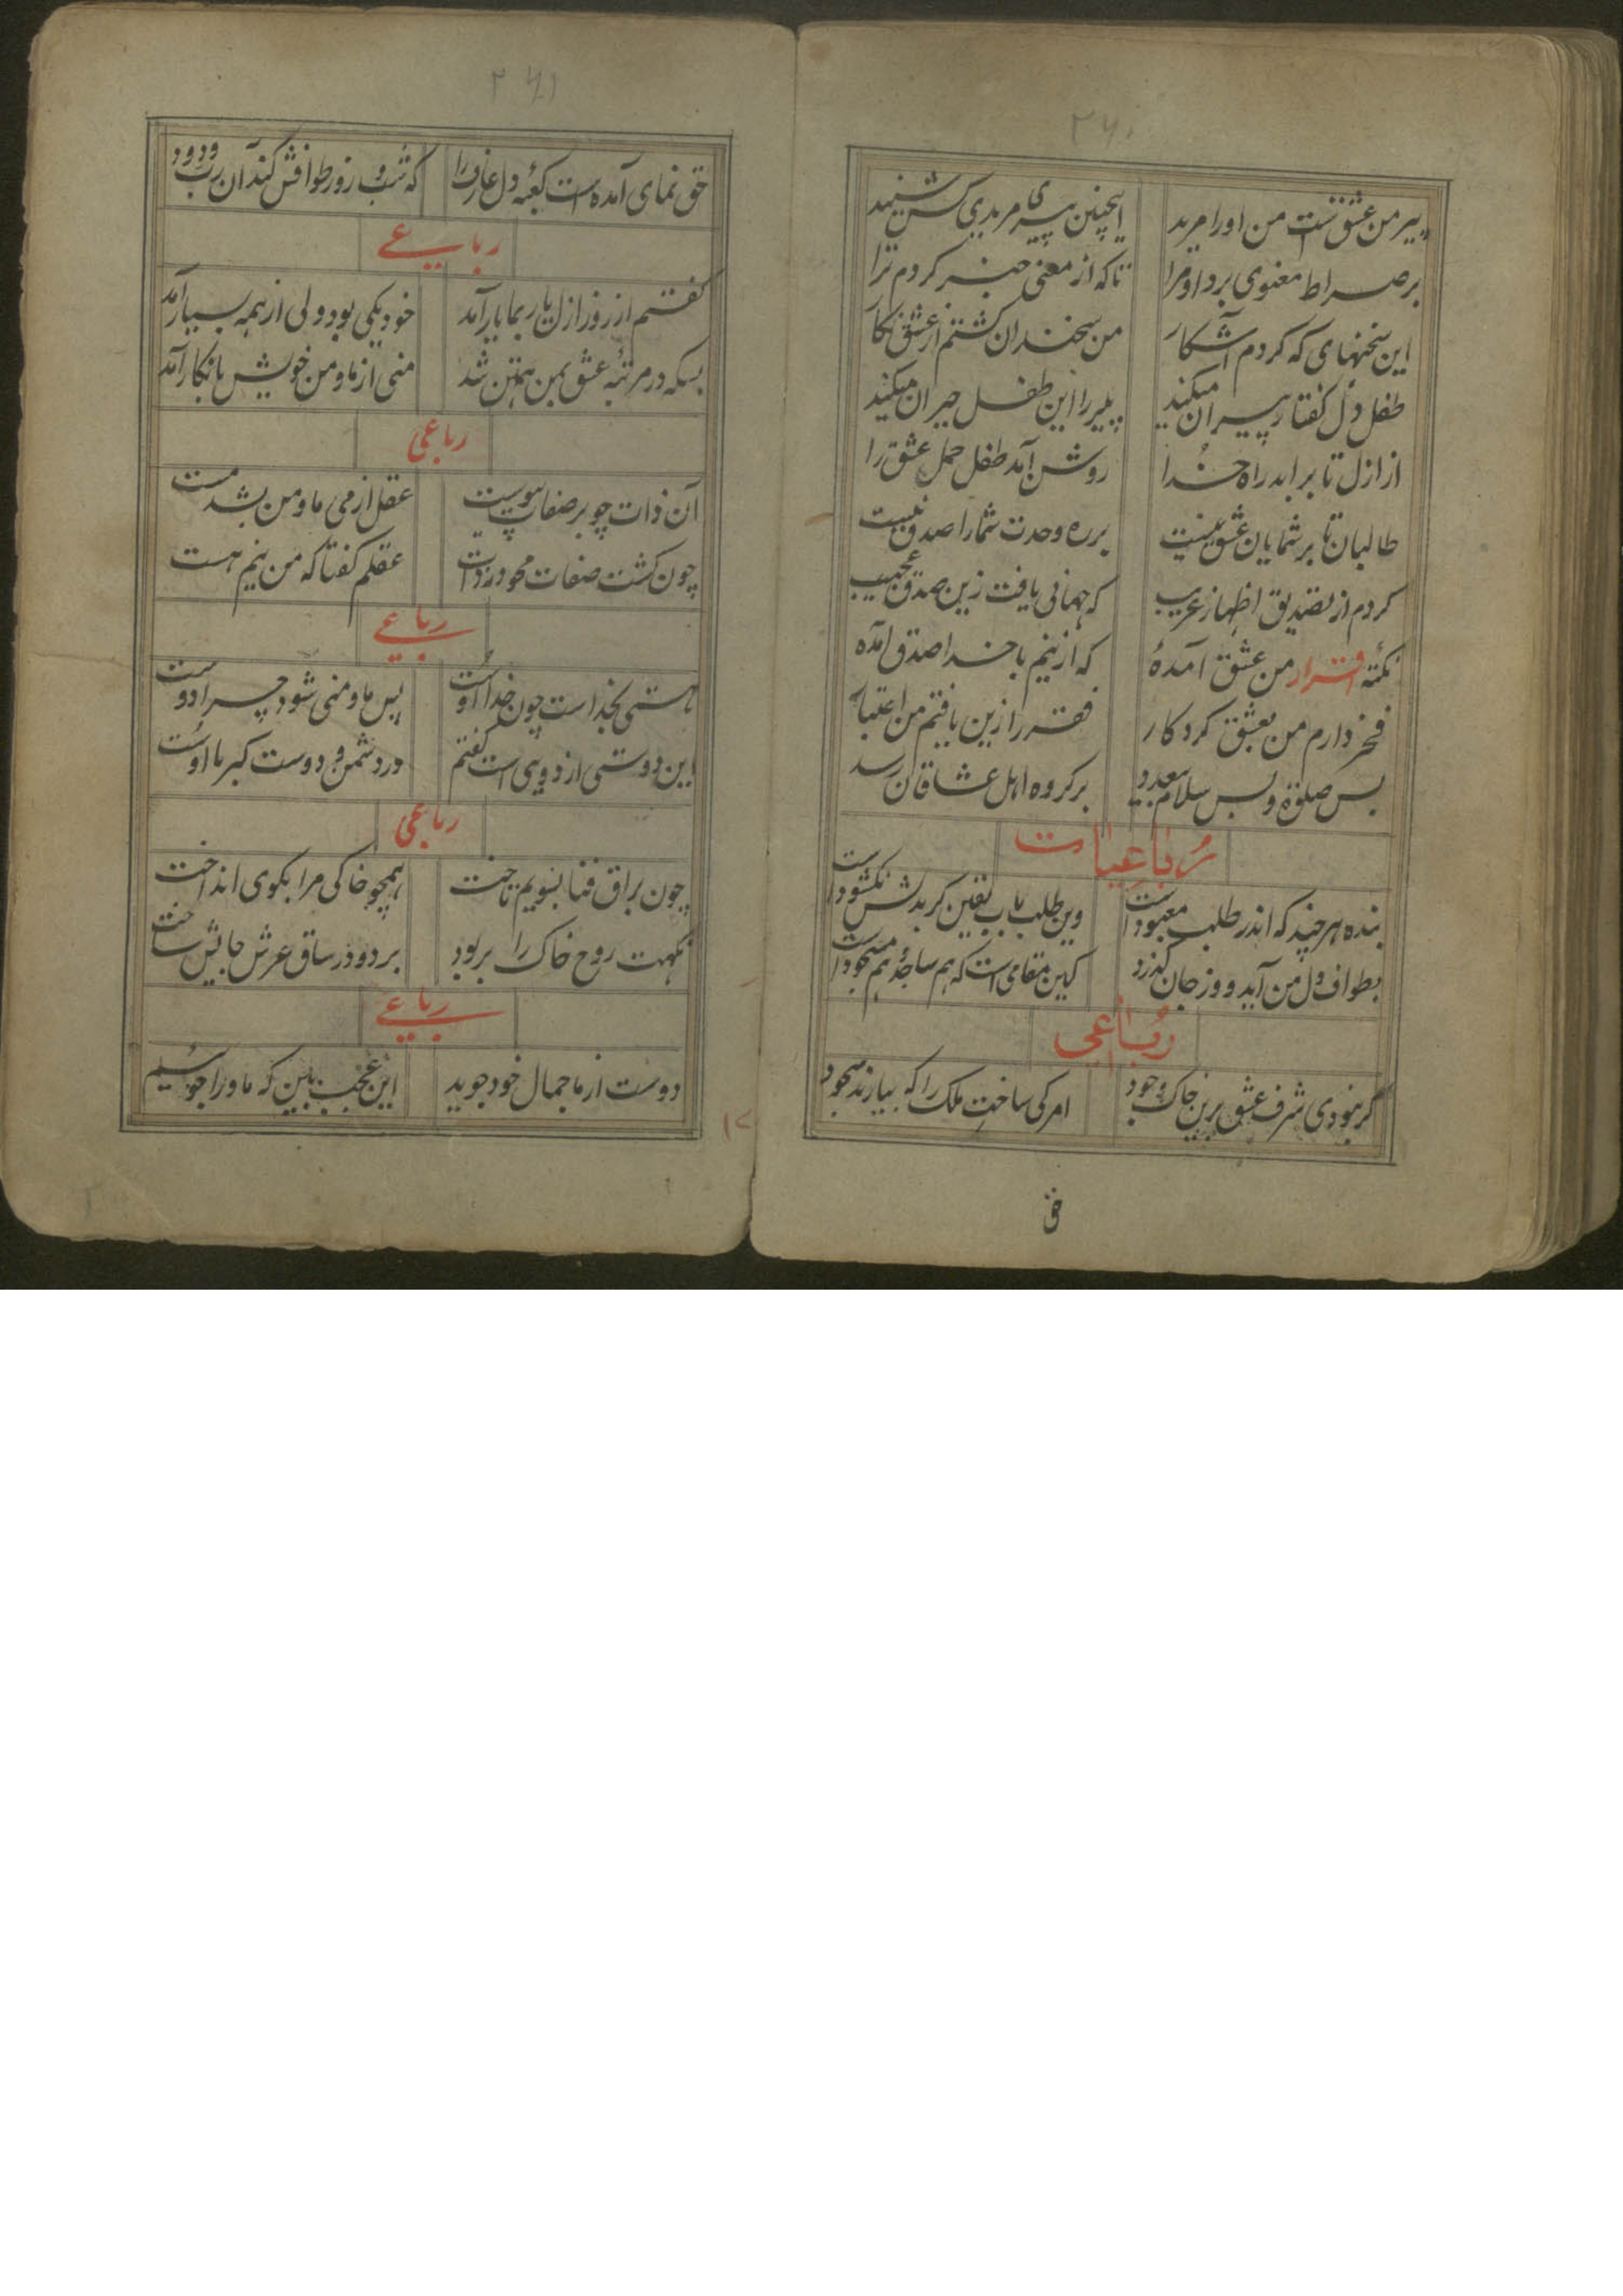 ۲۶۰
پیر من عشقست من او را مرید اینچنین پیری مریدی کس شنید
بر صراط معنوی برد او مرا تا که از معنی خبر کردم ترا
این سخنهای که کردم آشکار من سخندان گشتم از عشق نگار
طفل دل گفتار پیران میکند پیر را این طفل حیران میکند
از ازل تا بر ابد راه خدا روشن آمد طفل عشق را
طالبان تا بر شمایان عشق نیست بر ره وحدت شما را صدق نیست
کردم از تصدیق اظهار غریب که جهانی یافت زین صدق عجیب
نکته اقرار من عشق آمده که ازینم با خدا صدق آمده
فخر دارم من بعشق کردکار فقر را زین یافتم من اعتبار
بس صلوة و بس سلام بر کروه اهل عشاقان رسد
رباعیات
بنده هر چند که اندر طلب معبود است وین طلب باب یقین کر بدلش نکشود است
بطواف دل من آید و وز جان گذرد کین مقامی است که هم ساجد و هم مسجود است
رباعی
کر نبودی شرف عشق برین خاک وجود امر کی ساخت ملک را که بیارند سجود
ق
۲۶۱
حق نمای آمده است کعبهٔ دل عارف را که شب و روز طوافش کند آن رب ودود
رباعی
گفتم از روز ازل یار بما یار آمد خود یکی بود ولی از همه بسیار آمد
بسکه در مرتبهٔ عشق بمن همتن شد منی از ما و من خویش بانکار آمد
رباعی
آن ذات چو بر صفات پیوست عقل از می ما و من بشد مست
چون کشت صفات محو در ذات عقلم کفتا که من نیم هست
رباعی
هستی بخدا است چون خدا اوست پس ما و منی شود چرا دوست
این دوستی از دویی است کفتم در دشمن و دوست کبریا اوست
رباعی
چون براق فنا بسویم تاخت همچو خاکی مرا بکوی انداخت
نکهت روح خاک را بربود برد و در ساق عرش جایش ساخت
رباعی
دوست از ما جمال خود جوید این عجب بین که ما ورا جوئیم